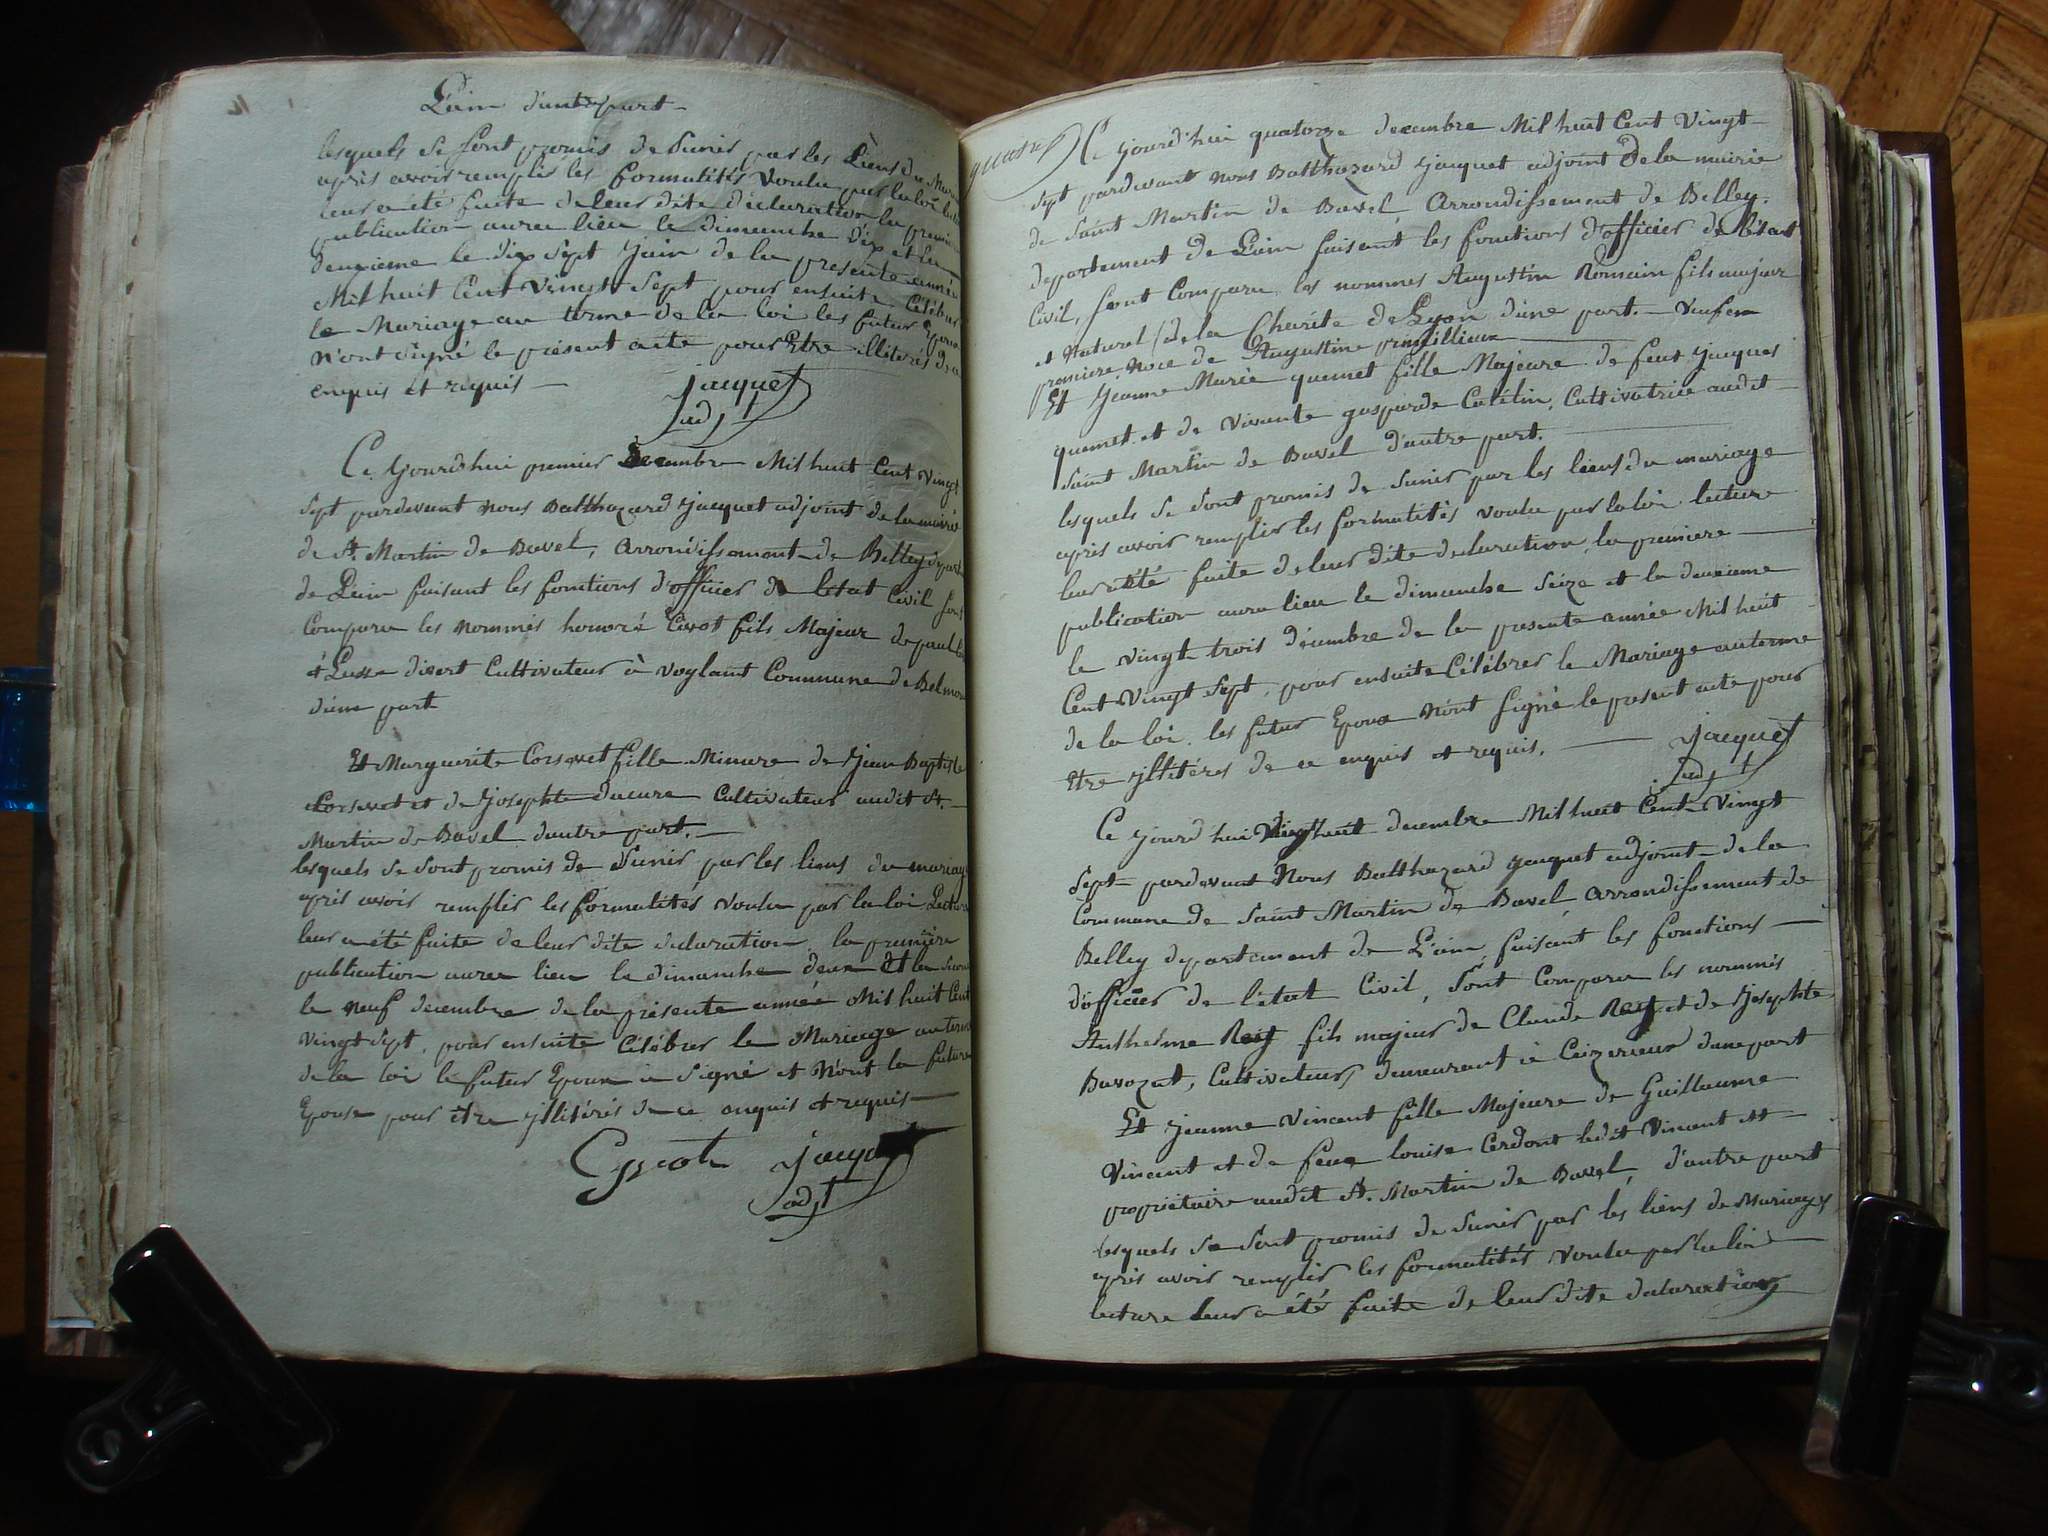 L'ain d'autre part
lesquels se sont promis de sunir par les Liens du
après avoir remplir les formalités voulu par la loi
leur a été faite de leur dite déclaration la premiere
publication aurea lieu le dimanche dix et la
deuxieme le dix sept juin de la presente année
Mil huit Cent Vingt Sept pour ensuite Célébrer
le Mariage au terme de la loi les futur Epoux
n'ont signé le présent acte pour Etre illiterés de ce
enquis et requis
jacquet
adjt
Ce Jourdhui premier decembre Mil huit Cent Vingt
Sept pardevant nous Balthazard jacquet adjoint de la mairie
de St. Martin de Bavel, arrondissement de Belley
de L'ain faisant les fonctions d'officier de letat Civil sont
Comparu les nommés honoré Carot fils Majeur de paul
et divert Cultivateur à Voglant Commune de Belmon
dune part
Et Marguerite Corsavet fille Mineure de Jean Baptiste
Corsavet et de Josephte ducure Cultivateur audit St.
Martin de Bavel dautre part.
lesquels se sont promis de sunir par les liens du mariage
après avoir remplir les formalités voulu par la loi Lecture
leur a été faite de leur dite déclaration, la première
publication aurea lieu le dimanche deux Et la
le neuf decembre de la présente année Mil huit Cent
Vingt Sept, pour ensuite Célébrer le Mariage au terme
de la loi le futur Epoux a signé et Nont la future
Epouse pour être illitérés de ce enquis et requis
jacquet
adjt
quemet
Ce Jourd'hui quatorze decembre Mil huit Cent Vingt
Sept pardevant nous Balthazard jacquet adjoint De la mairie
de Saint Martin de Bavel Arrondissement de Belley.
departement de L'ain faisant les fonctions d'officier de l'état
Civil, sont Comparu les nommes Augustin Romain fils majeur
et Naturel de la Charité de Lyon dune part. Veuf en
premiere Noce de Augustine
Et Jeanne Marie quemet fille Majeure de feu Jacques
quemet et de Vivante gasparde Catélin, Cultivatrice audit
Saint Martin de Bavel d'autre part.
lesquels se sont promis de sunir par les liens du mariage
après avoir remplir les formalités voulu par la loi lecture
leur a été faite de leur dite declaration, la première
publication aurea lieu le dimanche Seize et la deuxieme
le vingt trois décembre de la presente année Mil huit
Cent Vingt Sept, pour ensuite Célébrer le Mariage au terme
de la loi. les futur Epoux Nont signé le présent acte pour
Etre illitérés de ce enquis et requis.
jacquet
adjt
Ce Jourd hui Vingt huit decembre Mil huit Cent Vingt
Sept pardevant Nous Balthazard jacquet adjoint de la
Commune de Saint Martin de Bavel arrondissement de
Belley departement de L'ain, faisant les fonctions
d'officier de l'état Civil, Sont Comparu les nommés
Anthelme Rey fils majeur de Claude Rey et de Josephte
Bavozat, Cultivateur, demeurant à Ceizerieux dune part
Et Jeanne Vincent fille Majeure de Guillaume
Vincent et de feue louise Cerdont ledit Vincent
propriétaire audit St. Martin de Bavel, d'autre part
lesquels se sont promis de sunir par les liens de Mariage
après avoir remplir les formalités voulu par la loi
lecture leur a été faite de leur dite declaration